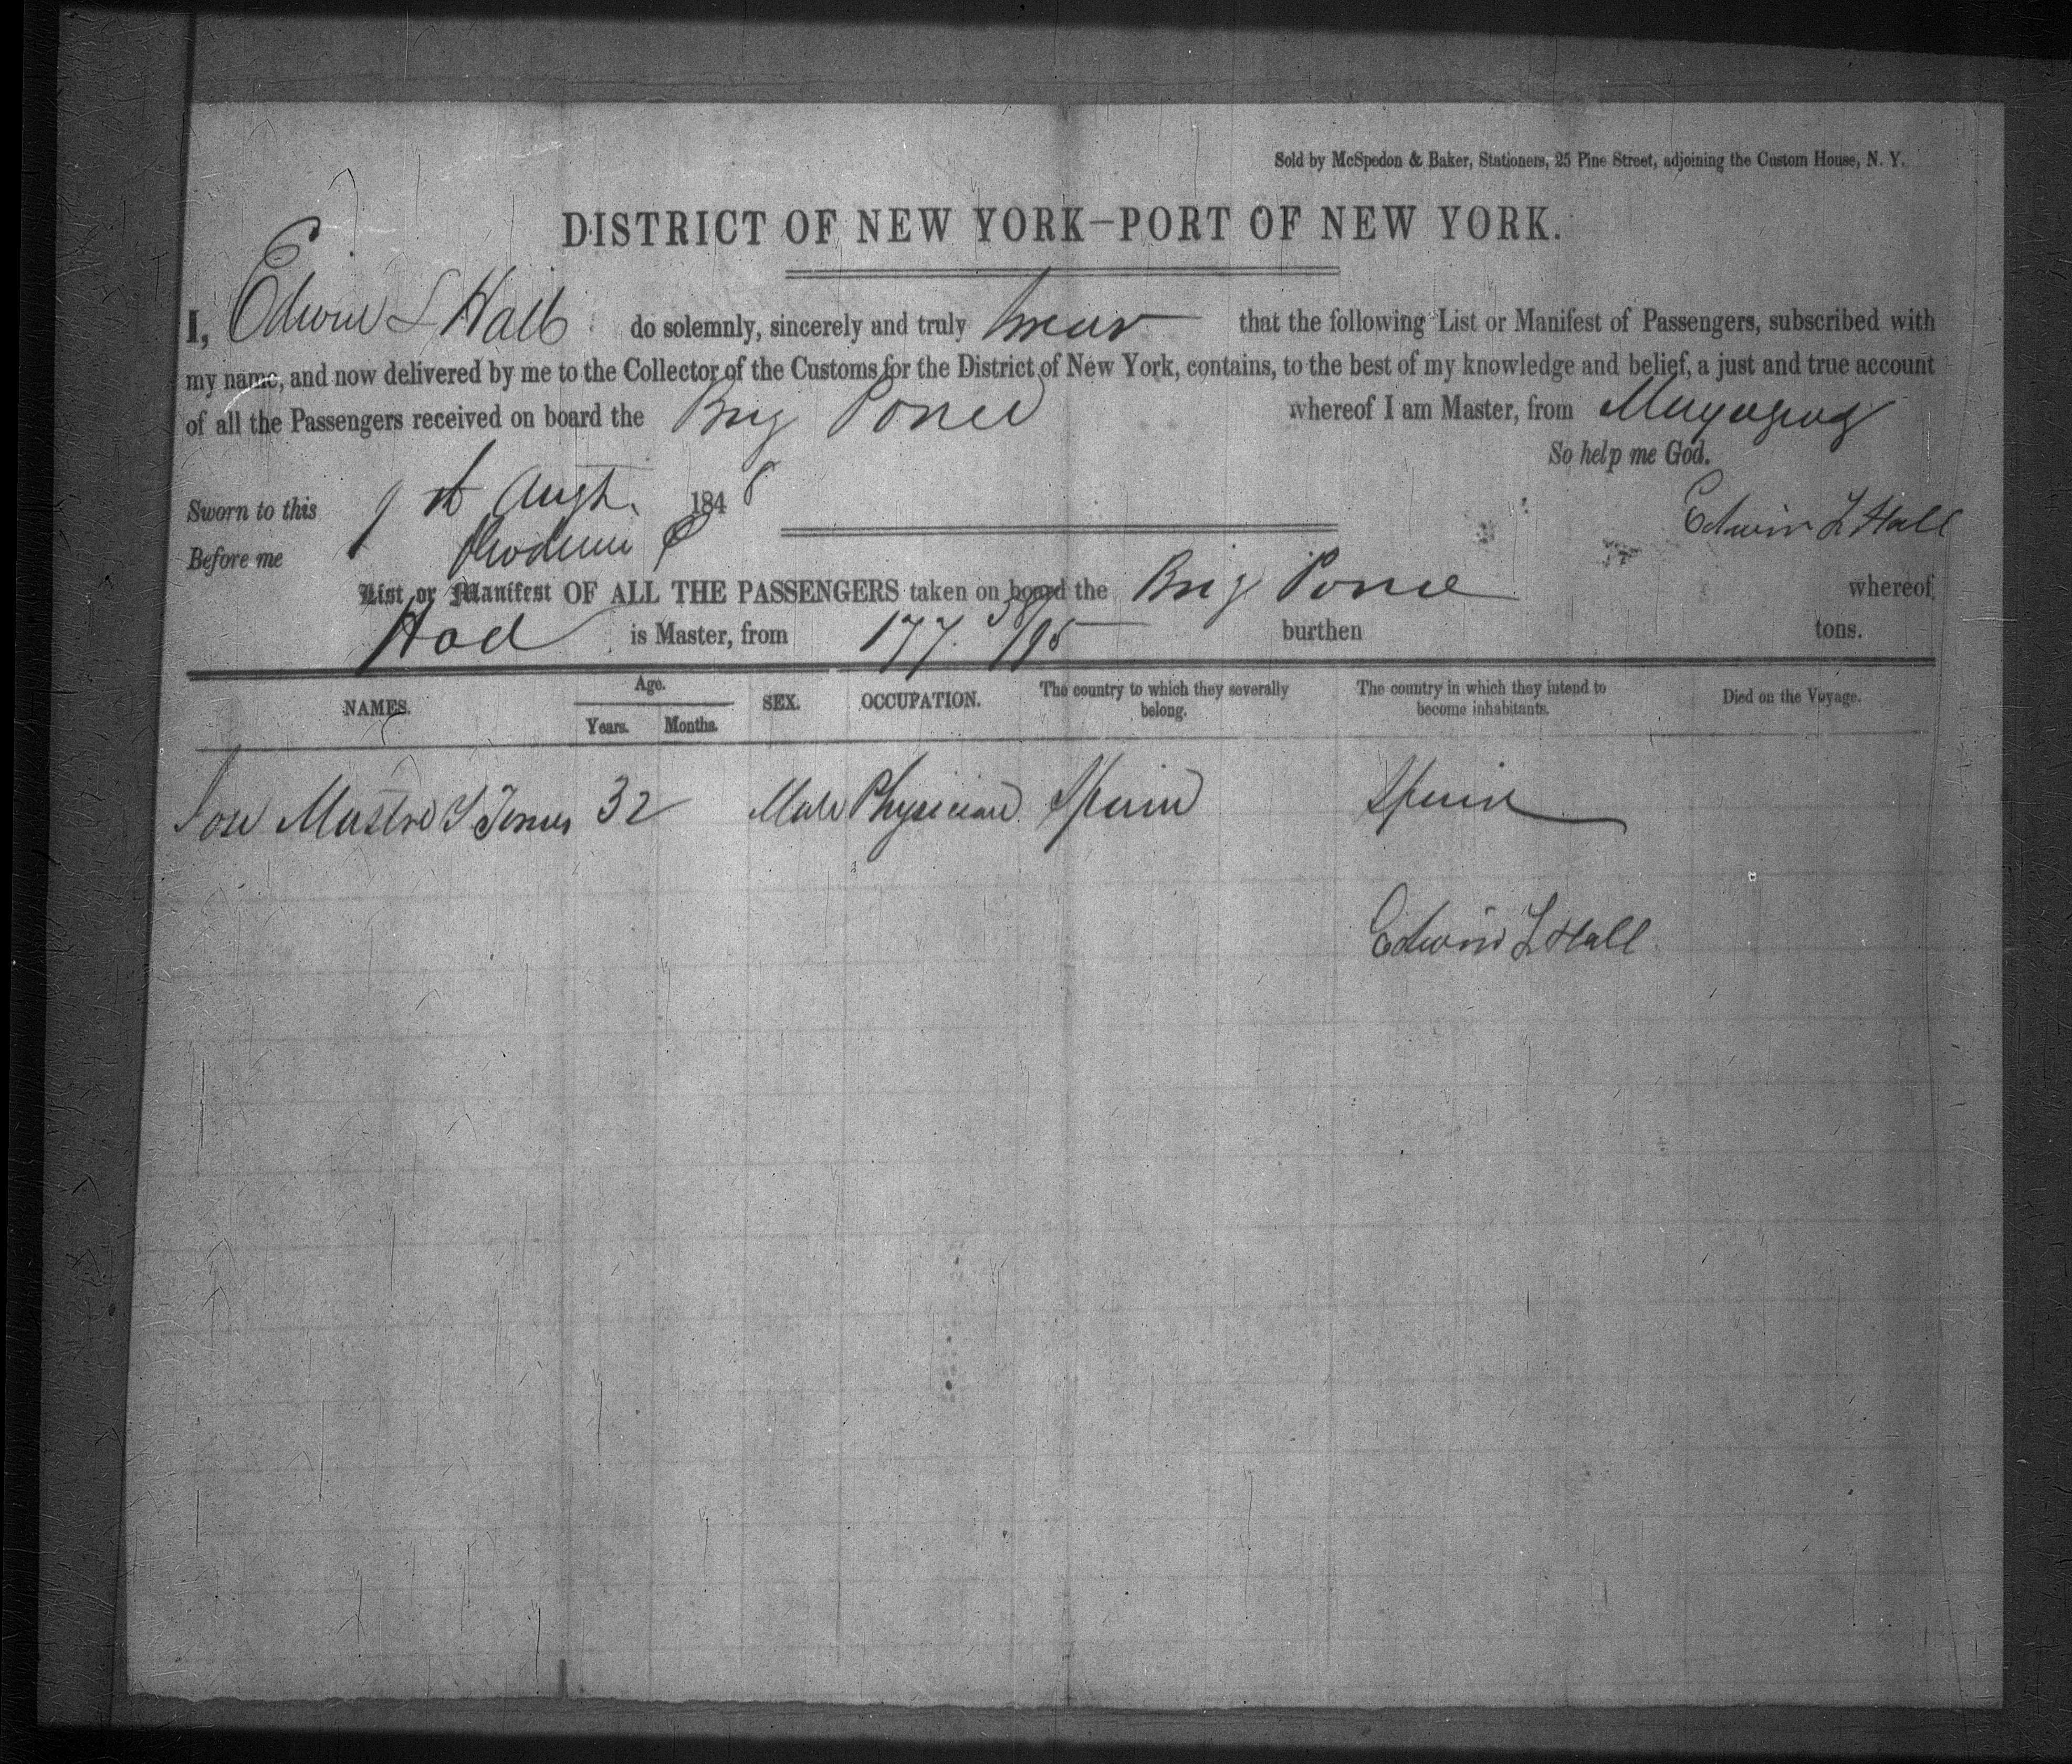 Sold by McSpedon & Baker, Stationers, 25 Pine Street, adjoining the Custom House, N. Y.
DISTRICT OF NEW YORK—PORT OF NEW YORK.
I, Edwin L Hall do solemnly, sincerely and truly swear that the following List or Manifest of Passengers, subscribed with
my name, and now delivered by me to the Collector of the Customs for the District of New York, contains, to the best of my knowledge and belief, a just and true account
of all the Passengers received on board the Brig Ponce whereof I am Master, from Mayaguez
So help me God.
Sworn to this 9th Augt. 1848
Edwin L Hall
Before me
List or Manifest OF ALL THE PASSENGERS taken on board the Brig Ponce whereof
is Master, from 177. 38/95 burthen tons.
NAMES. Age. SEX. OCCUPATION. The country to which they severally belong. The country in which they intend to become inhabitants. Died on the Voyage.
Years. Months.
32 Male Physician Spain Spain
Edwin L Hall